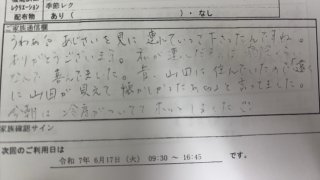 レクリエーション 季節レク
配布物 あり( )・なし
ご家族通信欄
うわぁ〜 あじさいを見に連れていって下さったんですね。
ありがとうございます。私が運んだ
なんて喜んでました。昔、山田に住んでいたので「遠く
に山田が見えて懐かしかったわ」と言ってました。
今朝は冷房がついてて
家族確認サイン
次回のご利用日は
令和 7年 6月17日 (火) 09:30 〜 16:45 です。